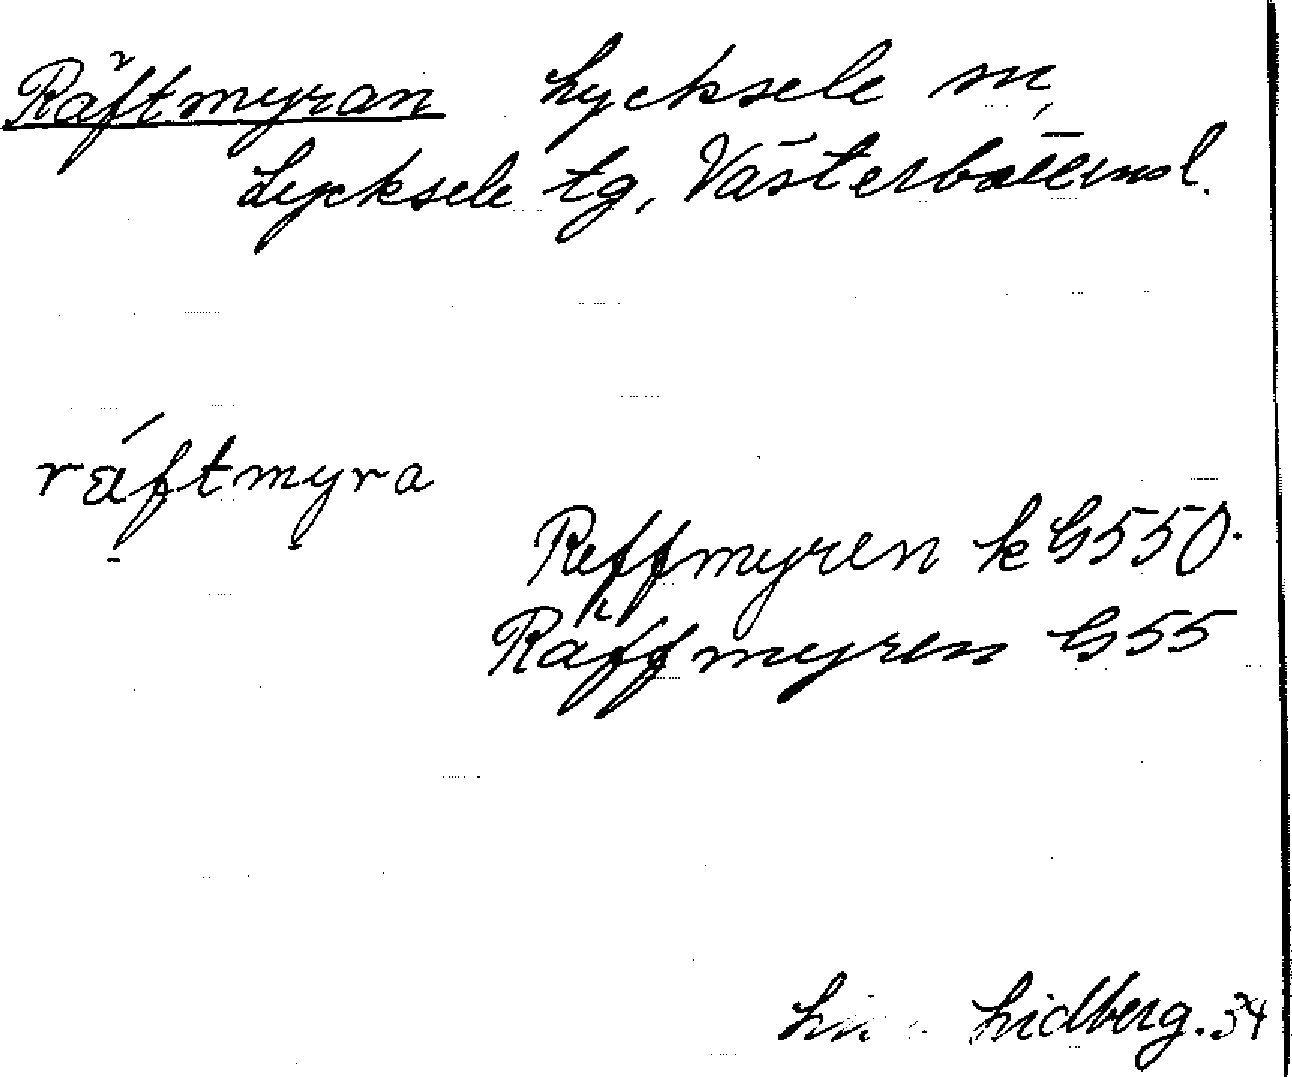 Räftmyran Lycksele m,
Lycksele tg, Västerbottens l.
räftmyra
Reffmyren k G550.
Räffmyren G55
Lidberg. 34